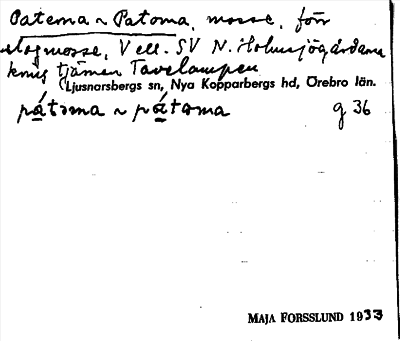 Paterna ~ Patoma, mosse, förr
slogmosse, V ell. SV N. Holmsjögårdarna
kring tjärnen Tavelampen
Ljusnarsbergs sn, Nya Kopparbergs hd, Örebro län.
pátərna ~ pátəma g 36
MAJA FORSSLUND 1933